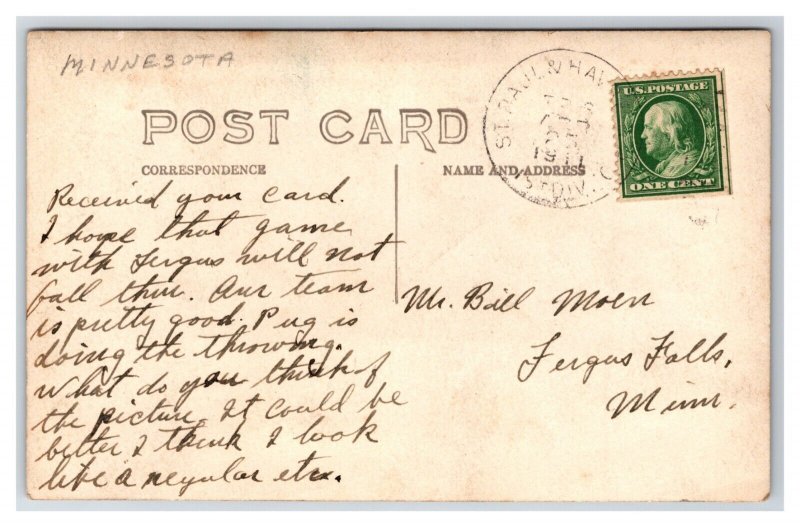 MINNESOTA
ST. PAUL & HAV
1911
1ST DIV.
U.S. POSTAGE
ONE CENT
POST CARD
CORRESPONDENCE
NAME AND ADDRESS
Received your card.
I hope that game
with Fergus will not
fall thru. Our team
is pretty good. Pug is
doing the throwing.
What do you think of
the picture. It could be
better I think I look
like a regular etc.
Mr. Bill Moen
Fergus Falls,
Minn.